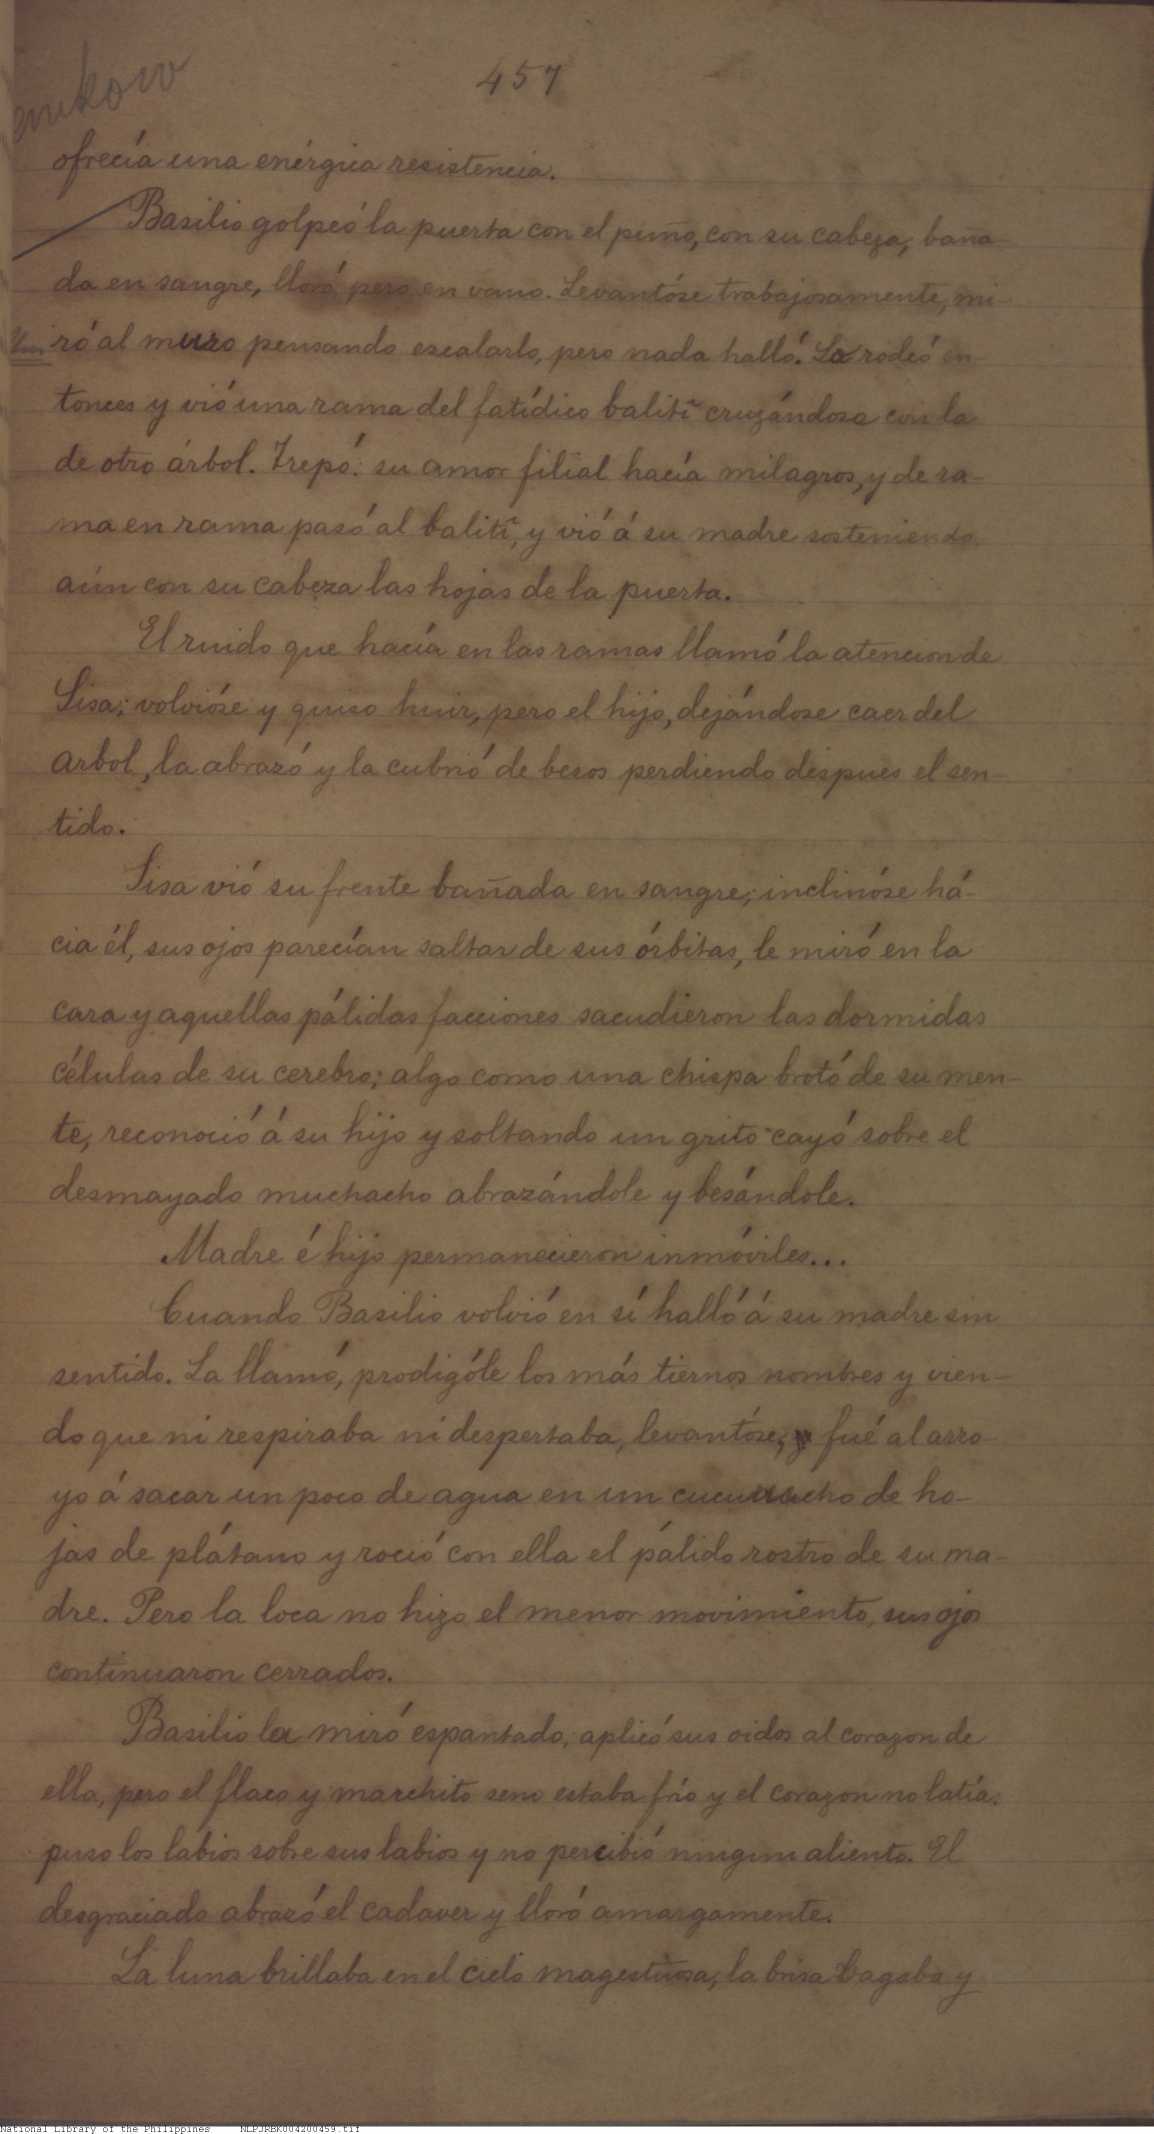 457
ofrecía una enérgica resistencia.
Basilio golpeó la puerta con el puño, con su cabeza, baña-
da en sangre, lloró pero en vano. Levantóse trabajosamente, mi-
ró al muro pensando escalarlo, pero nada halló. Lo rodeó en-
tonces y vió una rama del fatídico balitî cruzándose con la
de otro árbol. Trepó: su amor filial hacía milagros, y de ra-
ma en rama pasó al balitî, y vió á su madre sosteniendo
aún con su cabeza las hojas de la puerta.
El ruido que hacía en las ramas llamó la atencion de
Sisa; volvióse y quiso huir, pero el hijo, dejándose caer del
arbol, la abrazó y la cubrió de besos perdiendo despues el sen-
tido.
Sisa vió su frente bañada en sangre; inclinóse há-
cia él, sus ojos parecían saltar de sus órbitas, le miró en la
cara y aquellas pálidas facciones sacudieron las dormidas
células de su cerebro; algo como una chispa brotó de su men-
te, reconoció á su hijo y soltando un grito cayó sobre el
desmayado muchacho abrazándole y besándole.
Madre é hijo permanecieron inmóviles...
Cuando Basilio volvió en sí halló á su madre sin
sentido. La llamó, prodigóle los más tiernos nombres y vien-
do que ni respiraba ni despertaba, levantóse, fué al arro-
yo á sacar un poco de agua en un cucurucho de ho-
jas de plátano y roció con ella el pálido rostro de su ma-
dre. Pero la loca no hizo el menor movimiento, sus ojos
continuaron cerrados.
Basilio la miró espantado; aplicó sus oidos al corazon de
ella, pero el flaco y marchito seno estaba frío y el corazon no latía:
puso los labios sobre sus labios y no percibió ningun aliento. El
desgraciado abrazó el cadaver y lloró amargamente.
La luna brillaba en el cielo magestuosa, la brisa vagaba y
National Library of the Philippines NLPJRBK004200459.tif